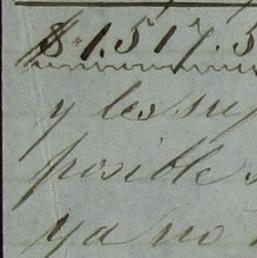 $ 1.517.5
y les sup
posible s
ya no